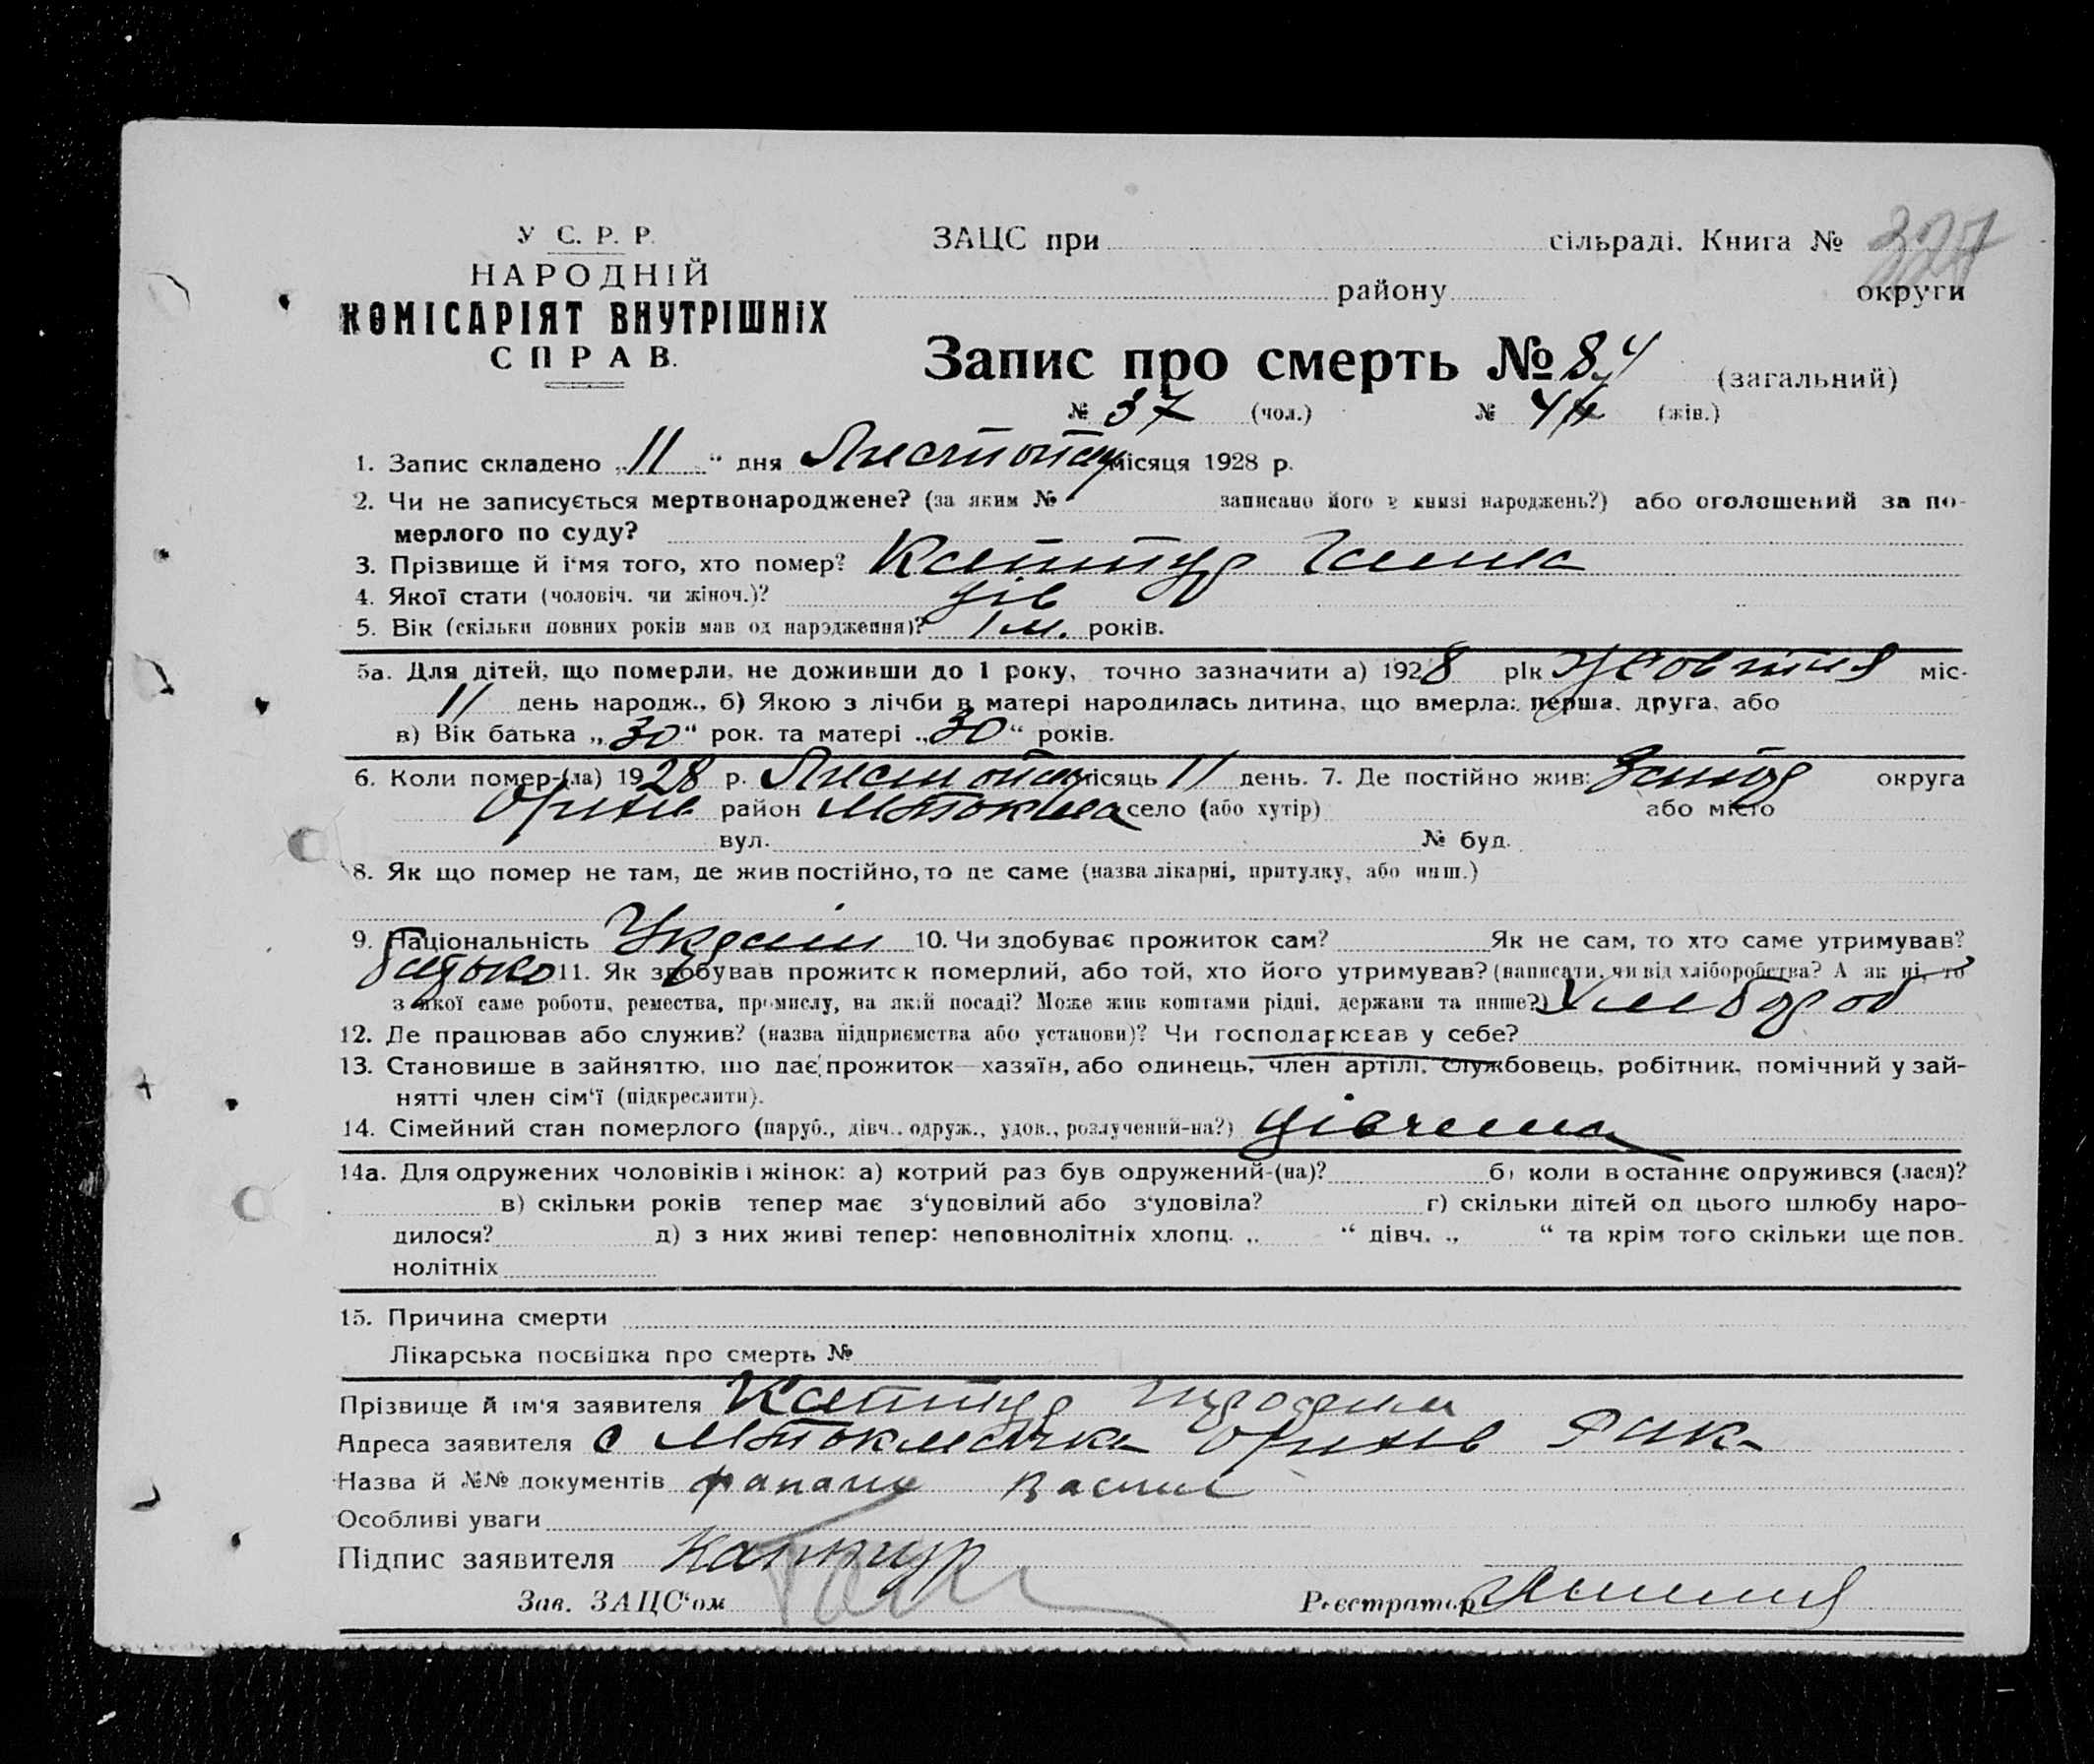 У С. Р. Р. ЗАЦС при сільраді. Книга № 327
НАРОДНІЙ району округи
КОМІСАРІЯТ ВНУТРІШНІХ
СПРАВ.
Запис про смерть № 84 (загальний)
№ 37 (чол.) № (жін.)
1. Запис складено „11" дня Листопад місяця 1928 р.
2. Чи не записується мертвонароджене? (за яким № записано його в книзі народжень?) або оголошений за по-
мерлого по суду?
3. Прізвище й і'мя того, хто помер? Каптур Ганна
4. Якої стати (чоловіч. чи жіноч.)? дів
5. Вік (скільки повних років мав од народження)? 1 м. років.
5а. Для дітей, що померли, не доживши до 1 року, точно зазначити а) 1928 рік Жовтня міс.
11 день народж., б) Якою з лічби в матері народилась дитина, що вмерла: перша, друга, або
в) Вік батька „30" рок. та матері „30" років.
6. Коли помер-(ла) 1928 р. Листопад місяць 11 день. 7. Де постійно жив: Запор округа
Оріхів район М Токмачка село (або хутір) або місто
вул. № буд.
8. Як що помер не там, де жив постійно, то де саме (назва лікарні, притулку, або инш.)
9. Національність Україн 10. Чи здобуває прожиток сам? Як не сам, то хто саме утримував?
батько 11. Як здобував прожиток померлий, або той, хто його утримував? (написати, чи від хліборобства? А як ні, то
з якої саме роботи, ремества, промислу, на якій посаді? Може жив коштами рідні, держави та инше?) Хлібороб
12. Де працював або служив? (назва підприємства або установи)? Чи господарював у себе?
13. Становише в зайняттю, що дає прожиток—хазяїн, або одинець, член артілі, службовець, робітник, помічний у зай-
нятті член сім'ї (підкреслити).
14. Сімейний стан померлого (паруб., дівч., одруж., удов., розлучений-на?) дівчина
14а. Для одружених чоловіків і жінок: а) котрий раз був одружений-(на)? б) коли в останнє одружився (лася)?
в) скільки років тепер має з'удовілий або з'удовіла? г) скільки дітей од цього шлюбу наро-
дилося? д) з них живі тепер: неповнолітніх хлопц. „ " дівч. „ " та крім того скільки ще пов.
нолітніх
15. Причина смерти
Лікарська посвідка про смерть №
Прізвище й ім'я заявителя Каптур
Адреса заявителя с М Токмачка Оріхів Рик
Назва й №№ документів
Особливі уваги
Підпис заявителя Каптур
Зав. ЗАЦС'ом Реєстратор